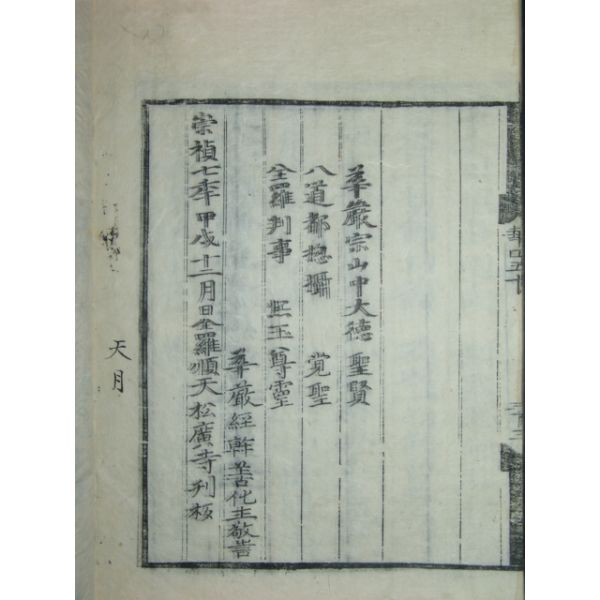 華嚴宗山中大德 聖賢
八道都摠攝 覚聖
全羅判事 熈玉尊靈
華嚴經幹善化主敬書
崇禎七年甲戌十二月日全羅順天松廣寺刊板
天月